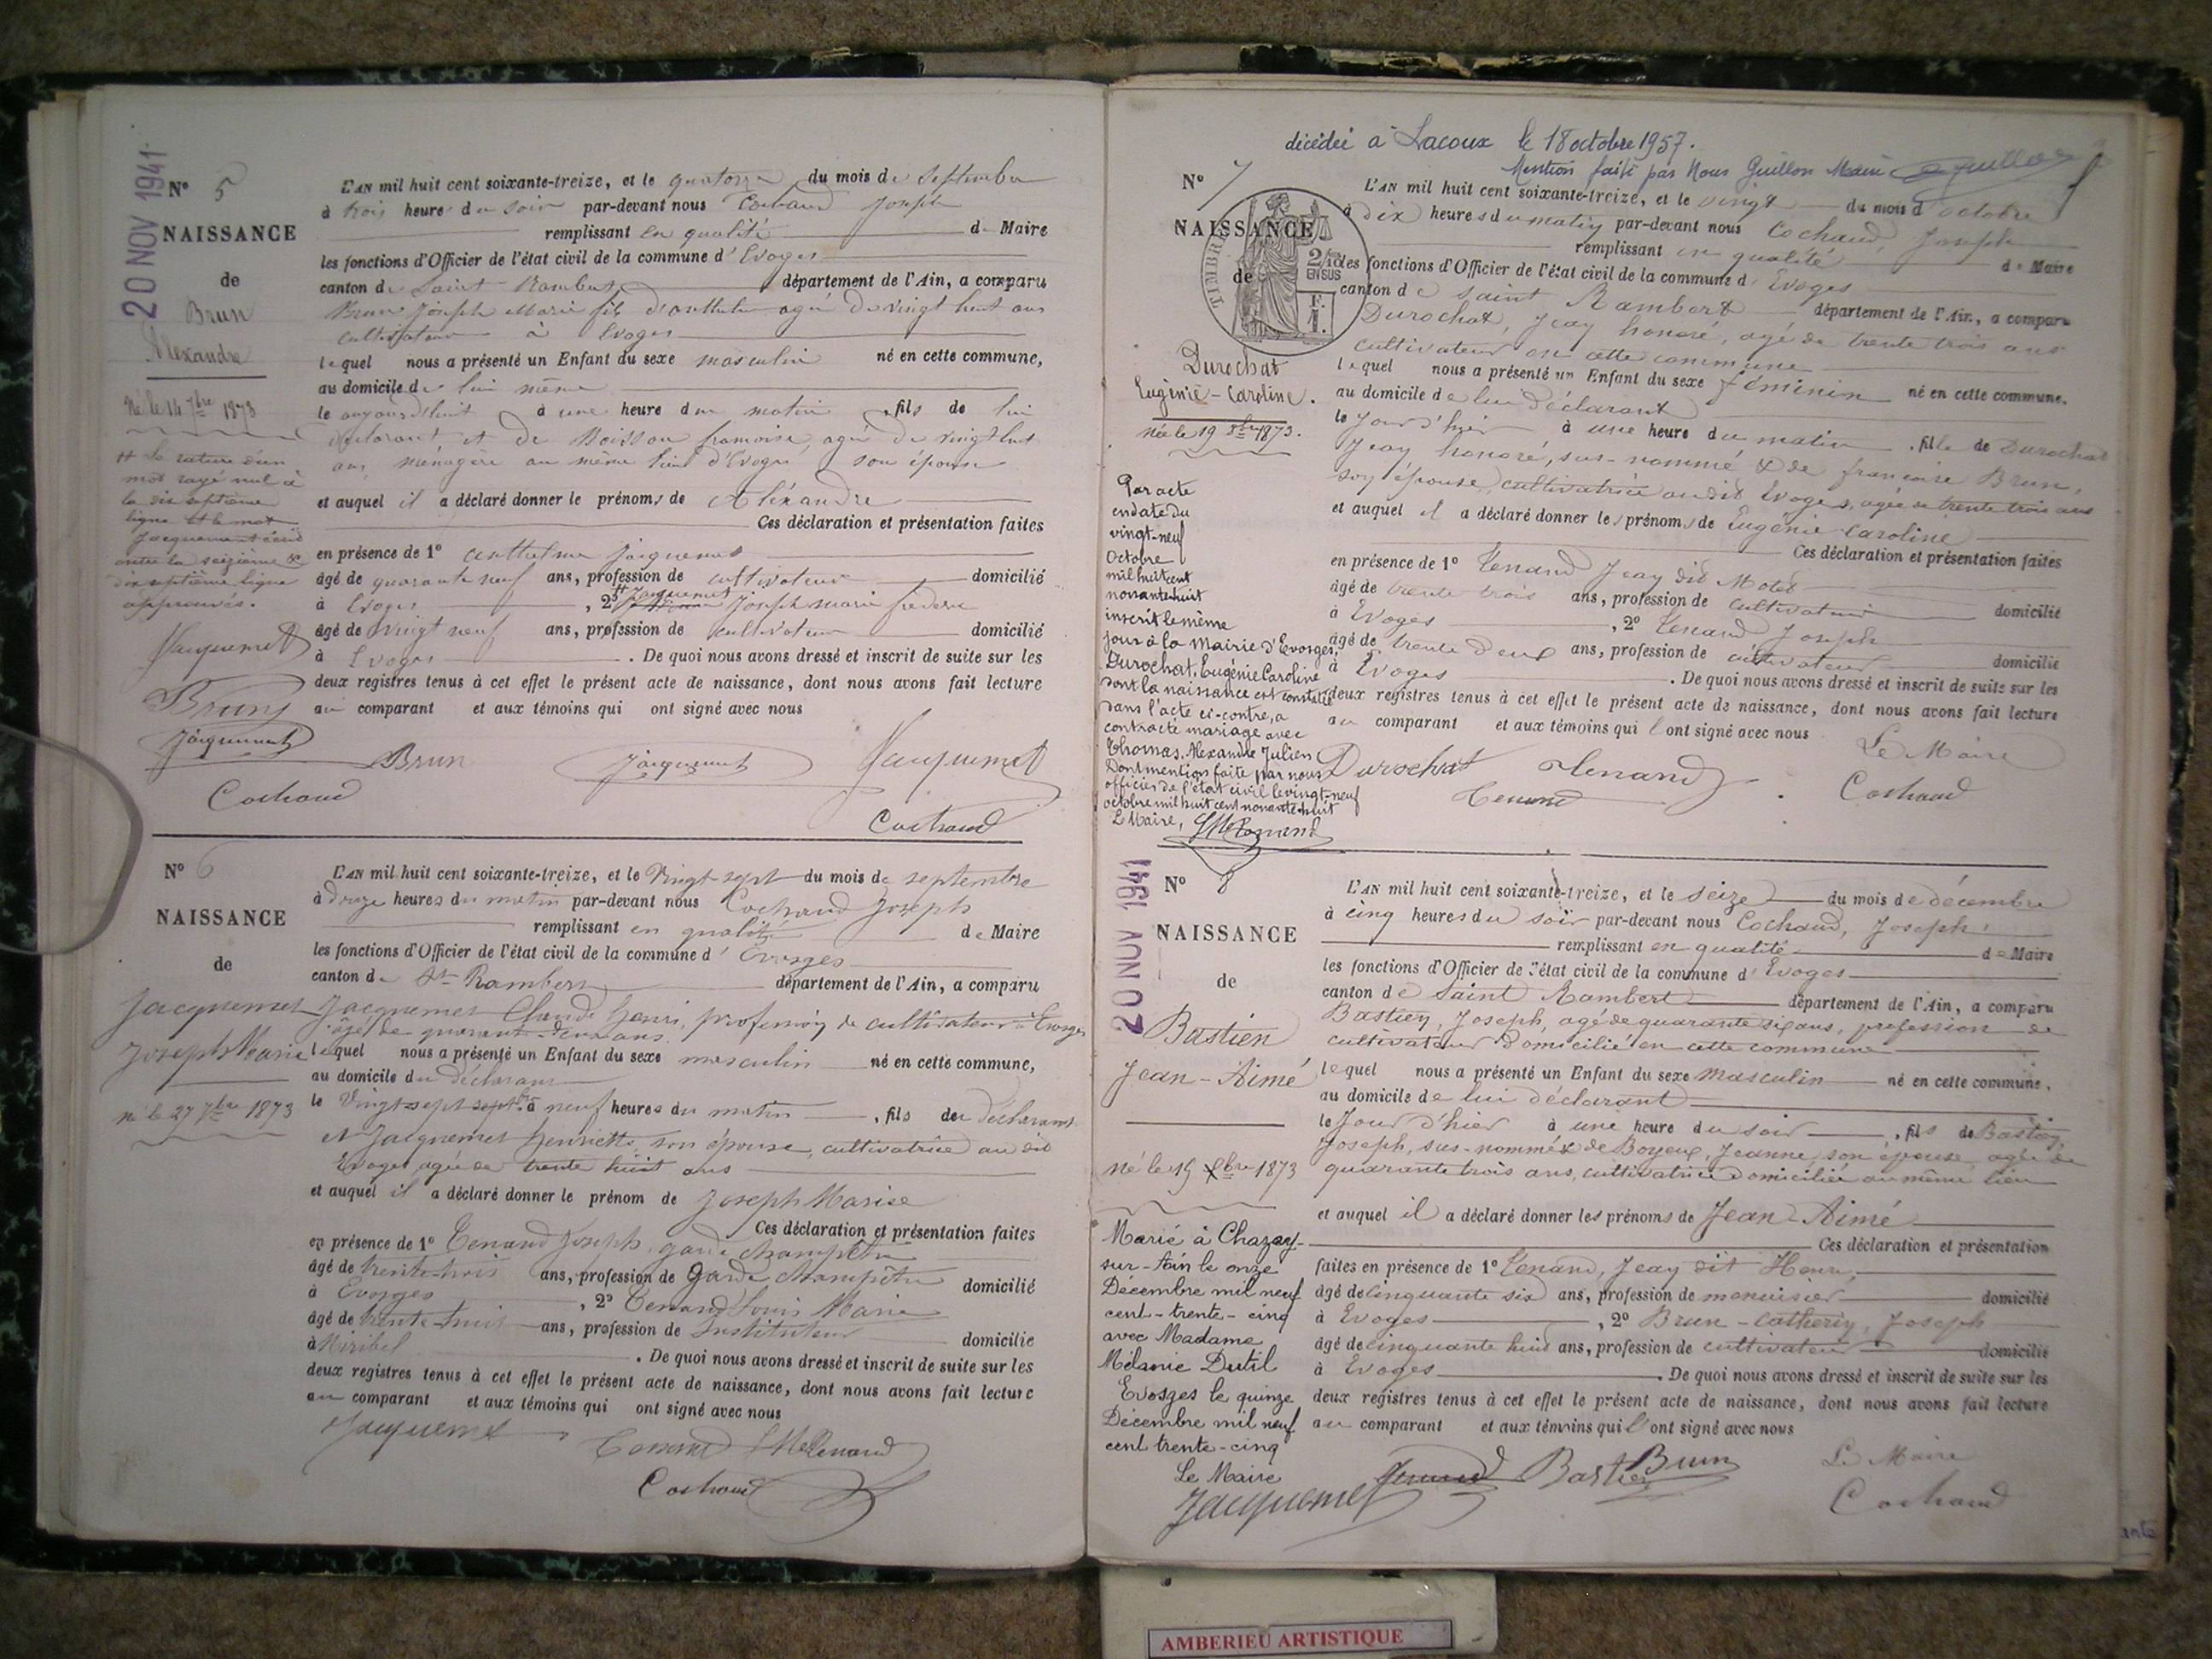 20 NOV 1941
N° 5
NAISSANCE
de
Brun
Alexandre
né le 14 7bre 1873
la rature d'un
mot rayé nul à
la dix septième
ligne et le mot
Jacquemet écrit
entre la seizième &
dix septième ligne
approuvés.
Jacquemet
Brun
Jacquemet
Cochaud
L'AN mil huit cent soixante-treize, et le quatorze du mois de Septembre
à trois heures du soir par-devant nous Cochaud Joseph
remplissant en qualité de Maire
les fonctions d'Officier de l'état civil de la commune d'Evoges
canton de Saint Rambert département de l'Ain, a comparu
Brun Joseph Marie fils d'anthelme agé de vingt huit ans
cultivateur à Evoges
lequel nous a présenté un Enfant du sexe masculin né en cette commune,
au domicile de lui même
le aujourd'huit à une heure du matin, fils de lui
déclarant et de françoise, agée de vingt huit
ans, ménagère au même lieu d'Evoges son épouse
et auquel il a déclaré donner le prénoms de Aléxandre
Ces déclaration et présentation faites
en présence de 1° anthelme jacquemet
âgé de quarante neuf ans, profession de cultivateur domicilié
à Evoges, 2° Jacquemet Joseph marie frederic
âgé de vingt neuf ans, profession de cultivateur domicilié
à Evoges. De quoi nous avons dressé et inscrit de suite sur les
deux registres tenus à cet effet le présent acte de naissance, dont nous avons fait lecture
au comparant et aux témoins qui ont signé avec nous
Brun Jacquemet Jacquemet
Cochaud
N° 6
NAISSANCE
de
Jacquemet
Joseph Marie
né le 27 7bre 1873
L'AN mil huit cent soixante-treize, et le Vingt-sept du mois de septembre
à Douze heures du matin par-devant nous Cochaud Joseph
remplissant en qualité de Maire
les fonctions d'Officier de l'état civil de la commune d'Evosges
canton de St Rambert département de l'Ain, a comparu
Jacquemet Claude Henri, profession de cultivateur à Evosges
âgé de quarant-deux ans
lequel nous a présenté un Enfant du sexe masculin né en cette commune,
au domicile du déclarant
le Vingt-sept sept.bre à neuf heures du matin, fils du déclarant
et Jacquemet Henriette, son épouse, cultivatrice au dit
Evoges, agée de trente huit ans
et auquel il a déclaré donner le prénom de Joseph Marie
Ces déclaration et présentation faites
en présence de 1° Tenand Joseph, garde champêtre
âgé de trente-trois ans, profession de Garde champêtre domicilié
à Evosges, 2° Tenand Louis Marie
âgé de trente-trois ans, profession de Instituteur domicilié
à Miribel. De quoi nous avons dressé et inscrit de suite sur les
deux registres tenus à cet effet le présent acte de naissance, dont nous avons fait lecture
au comparant et aux témoins qui ont signé avec nous
Jacquemet Tenand LM Tenand
Cochaud
décédée à Lacoux le 18 octobre 1957.
Mention faite par Nous Guillon Maire
N° 7
NAISSANCE
de
TIMBRE
2/10es
EN SUS
F.
1.
Durochat
Eugénie-Caroline.
née le 19 8bre 1873.
Par acte
en date du
vingt-neuf
Octobre
mil huit cent
nonante huit
inscrit le même
jour à la Mairie d'Evosges,
Durochat Eugénie Caroline
dont la naissance est constatée
dans l'acte ci-contre, a
contracté mariage avec
Thomas, Alexandre Julien
Dont mention faite par nous
officier de l'état civil le vingt-neuf
octobre mil huit cent nonante-huit
Le Maire,
L'AN mil huit cent soixante-treize, et le vingt du mois d'octobre
à dix heures du matin par-devant nous Cochaud, Joseph
remplissant en qualité de Maire
les fonctions d'Officier de l'état civil de la commune d'Evoges
canton de Saint Rambert département de l'Ain, a comparu
Durochat, Jean honoré, agé de trente trois ans
cultivateur en cette commune
lequel nous a présenté un Enfant du sexe féminin né en cette commune.
au domicile de lui déclarant
le Jour d'hier à une heure du matin, fille de Durochat
Jean honoré, sus-nommé & de françoise Brun,
son épouse, cultivatrice audit Evoges, agée de trente trois ans
et auquel il a déclaré donner les prénoms de Eugénie Caroline
Ces déclaration et présentation faites
en présence de 1° Tenand Jean dit Moted
âgé de trente trois ans, profession de cultivateur domicilié
à Evoges, 2° Tenand Joseph
âgé de trente deux ans, profession de cultivateur domicilié
à Evoges. De quoi nous avons dressé et inscrit de suite sur les
deux registres tenus à cet effet le présent acte de naissance, dont nous avons fait lecture
au comparant et aux témoins qui l'ont signé avec nous
Durochat Tenand Le Maire
Tenand Cochaud
20 NOV 1941
N° 8
NAISSANCE
de
Bastien
Jean-Aimé
né le 15 Xbre 1873
Marié à Chazay-
sur-Ain le onze
Décembre mil neuf
cent-trente-cinq
avec Madame
Mélanie Dutil
Evosges le quinze
Décembre mil neuf
cent trente-cinq
Le Maire
Jacquemet
L'AN mil huit cent soixante-treize, et le seize du mois de décembre
à cinq heures du soir par-devant nous Cochaud, Joseph,
remplissant en qualité de Maire
les fonctions d'Officier de l'état civil de la commune d'Evoges
canton de Saint Rambert département de l'Ain, a comparu
Bastien, Joseph, agé de quarante six ans, profession de
cultivateur domicilié en cette commune
lequel nous a présenté un Enfant du sexe masculin né en cette commune.
au domicile de lui déclarant
le Jour d'hier à une heure du soir, fils de Bastien,
Joseph, sus-nommé & de Boyeux, Jeanne, son épouse, agée de
quarante trois ans, cultivatrice domiciliée au même lieu
et auquel il a déclaré donner les prénoms de Jean-Aimé
Ces déclaration et présentation
faites en présence de 1° Tenand, Jean dit Henri,
âgé de cinquante six ans, profession de menuisier domicilié
à Evoges, 2° Brun-Catherin, Joseph
âgé de cinquante huit ans, profession de cultivateur domicilié
à Evoges. De quoi nous avons dressé et inscrit de suite sur les
deux registres tenus à cet effet le présent acte de naissance, dont nous avons fait lecture
au comparant et aux témoins qui l'ont signé avec nous
Tenand Bastien Brun Le Maire
Cochaud
AMBERIEU ARTISTIQUE